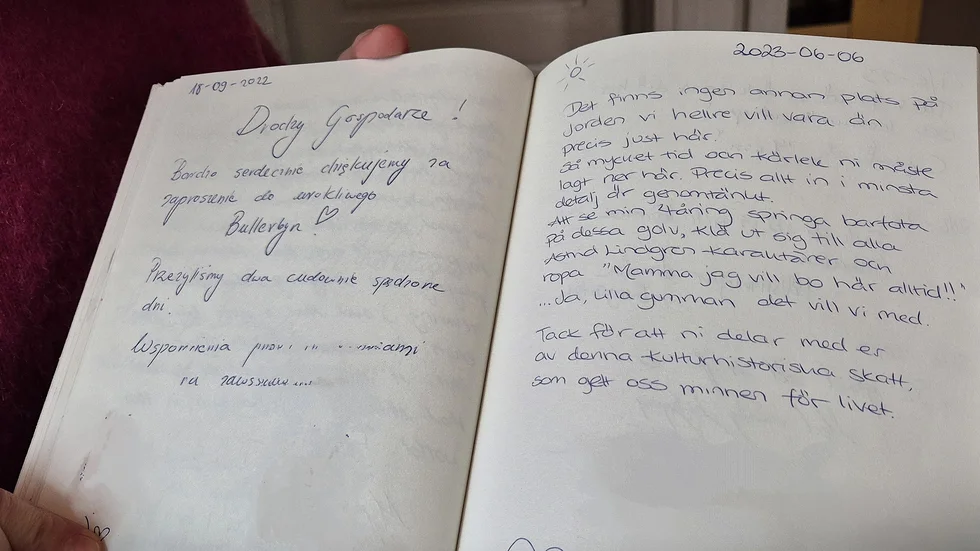 18-09-2022
Drodzy Gospodarze!
Bardzo serdecznie dziękujemy za
zaproszenie do urokliwego
Bullerbyn!
Przeżyliśmy dwa cudownie spędzone
dni.
Wspomnienia
na
2023-06-06
Det finns ingen annan plats på
jorden vi hellre vill vara än
precis just här.
Så mycket tid och kärlek ni måste
lagt ner här. Precis allt in i minsta
detalj är genomtänkt.
Att se min 4åring springa barfota
på dessa golv, klä ut sig till alla
Astrid Lindgren-karaktärer och
ropa "Mamma jag vill bo här alltid!!"
...Ja, lilla gumman det vill vi med.
Tack för att ni delar med er
av denna kulturhistoriska skatt,
som gett oss minnen för livet.